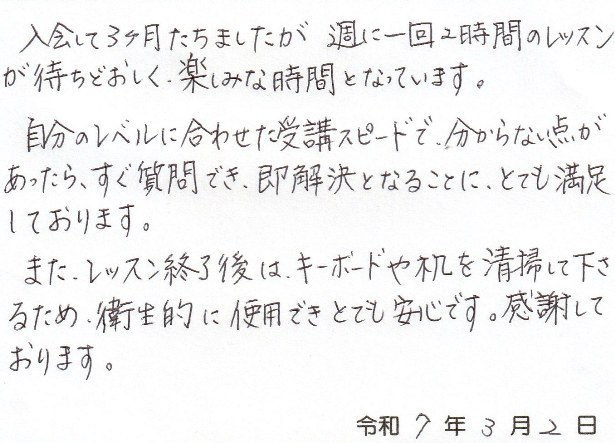 入会して3ヶ月たちましたが 週に一回2時間のレッスン
が待ちどおしく、楽しみな時間となっています。
自分のレベルに合わせた受講スピードで、分からない点が
あったら、すぐ質問でき、即解決となることに、とても満足
しております。
また、レッスン終了後は、キーボードや机を清掃して下さ
るため、衛生的に使用できとても安心です。感謝して
おります。
令和 7 年 3 月 2 日